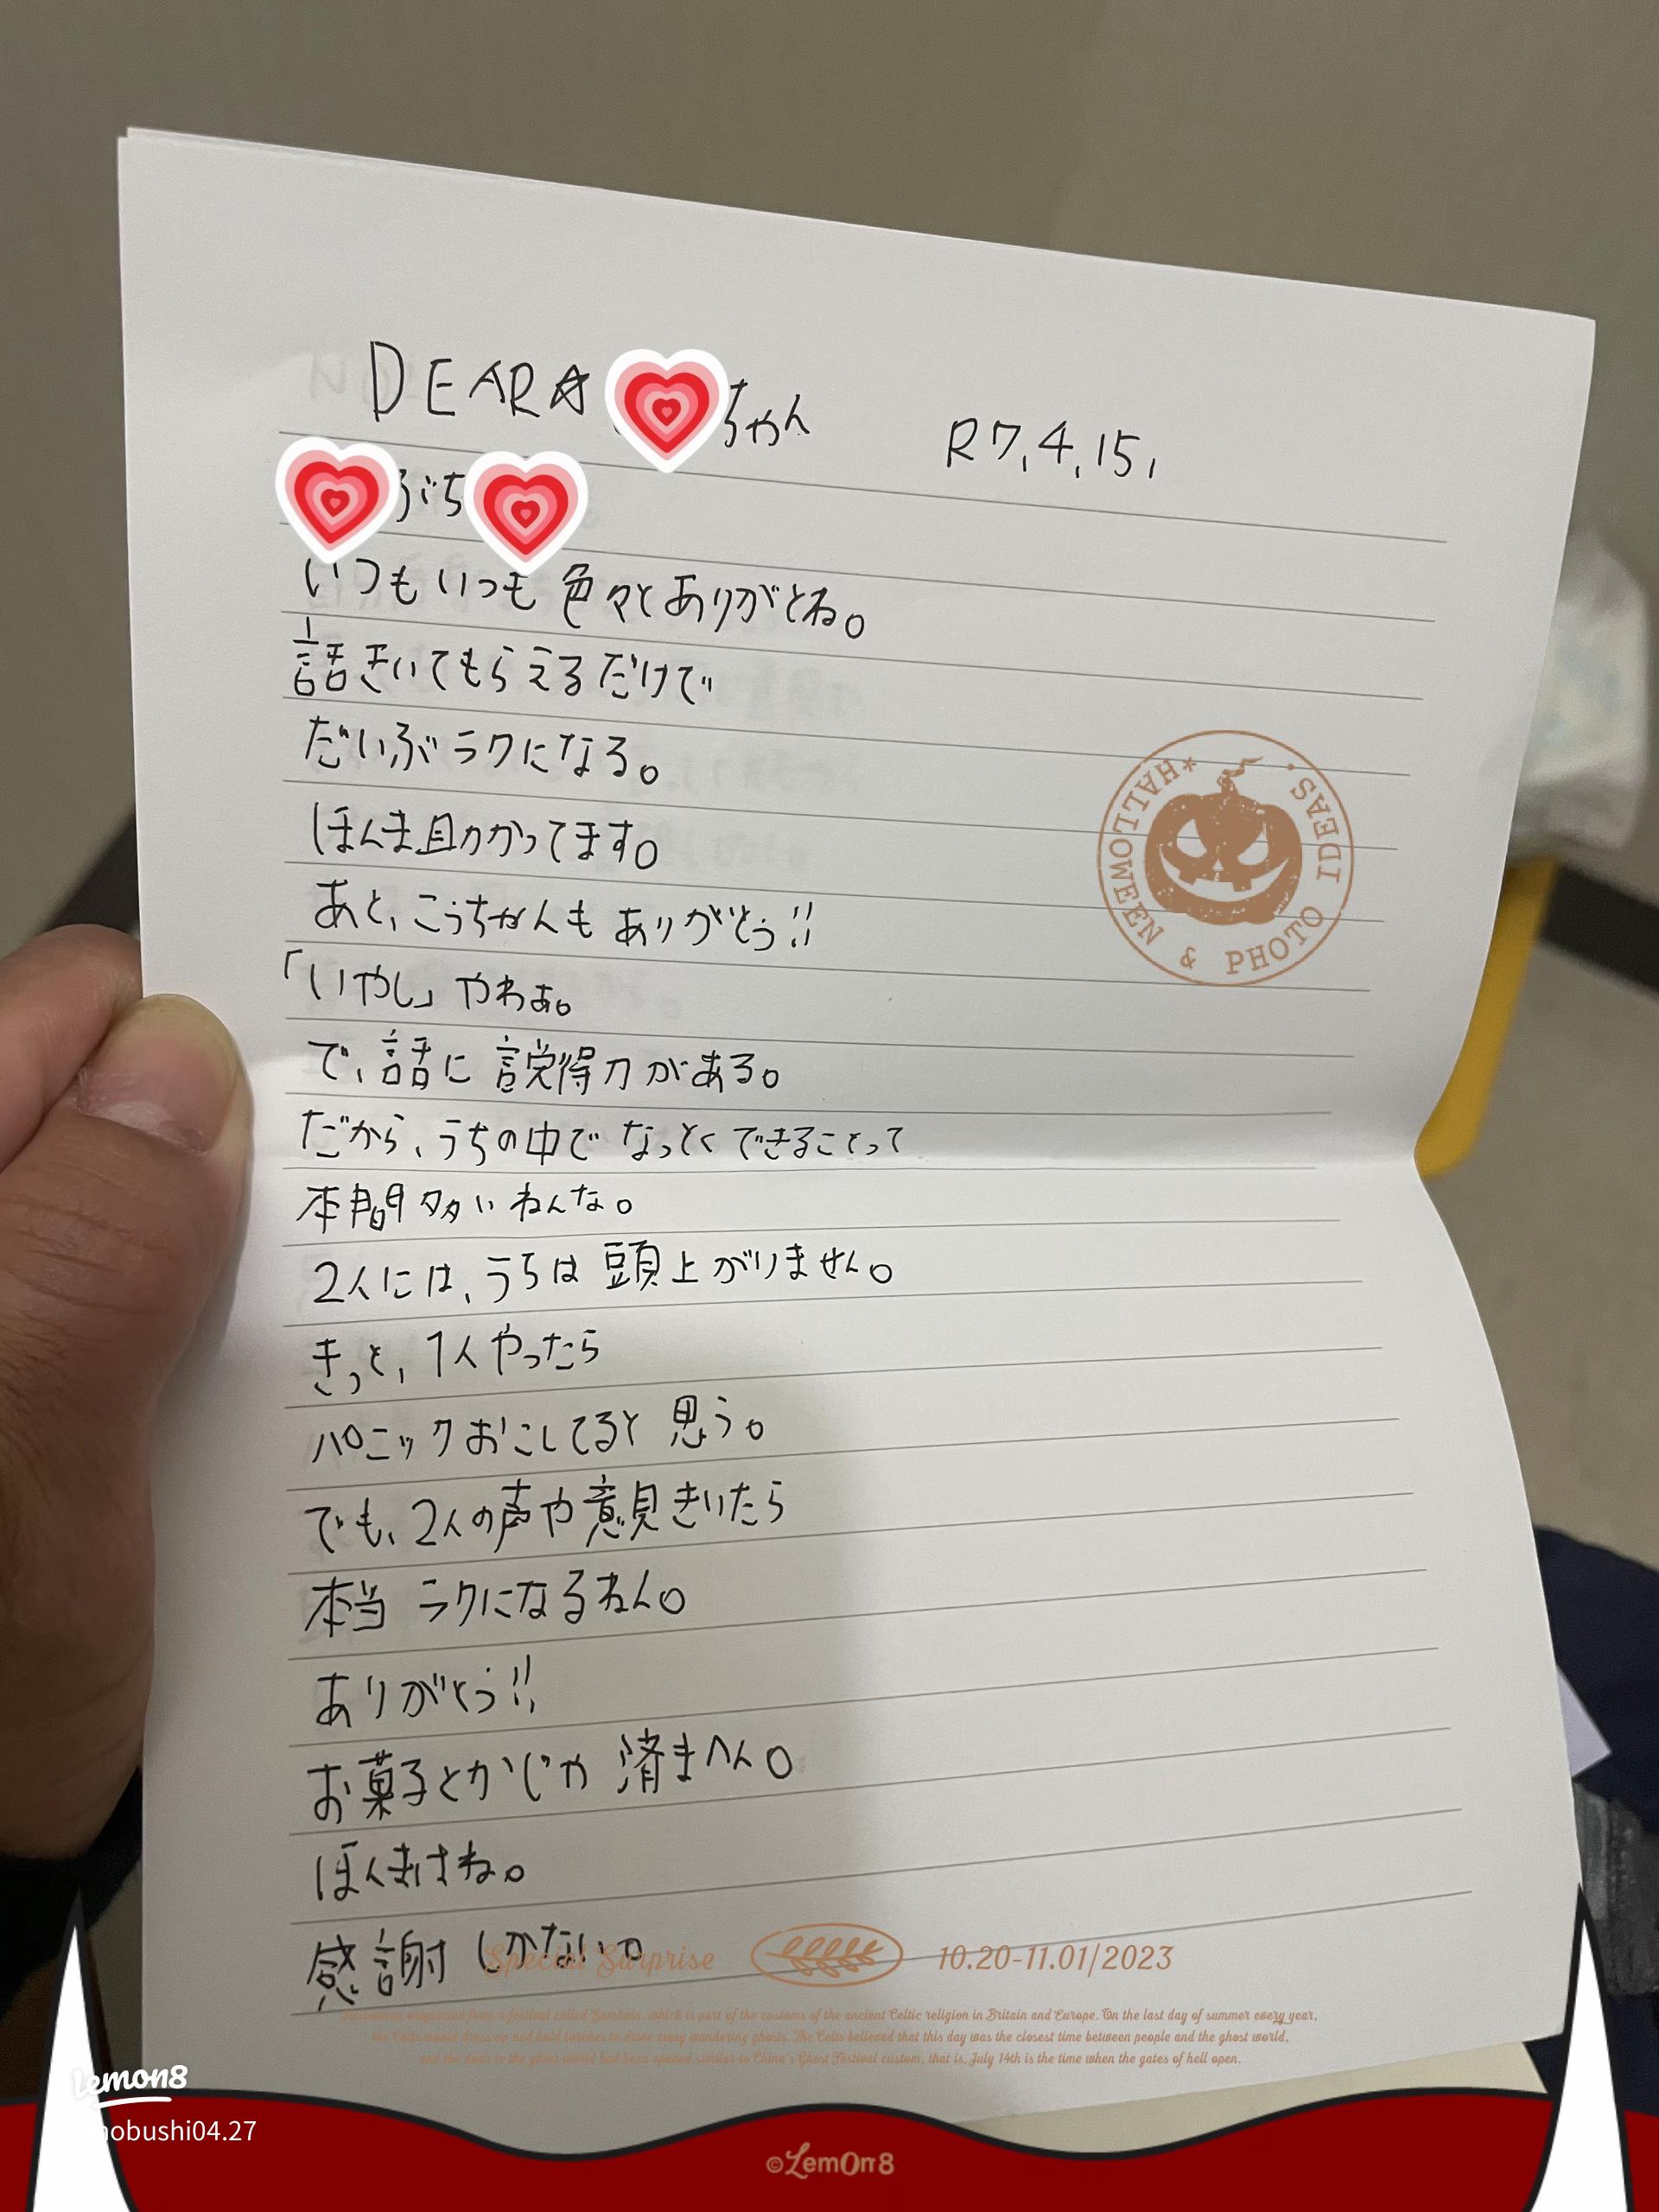 DEAR☆ ちゃん R7.4.15.
ぶち
いつもいつも 色々とありがとね。
話きいてもらえるだけで
だいぶラクになる。
ほんま助かってます。
あと、こうちゃんも ありがとう!!
「いやし」やわぁ。
で、話に 説得力がある。
だから、うちの中で なっとくできることって
本間多いねんな。
2人には、うちは 頭上がりません。
きっと、1人やったら
パニックおこしてると 思う。
でも、2人の声や意見きいたら
本当 ラクになるねん。
ありがとう!!
お菓子とかじゃ 済まへん。
ほんまけさね。
感謝しかない。
*HALLOWEEN & PHOTO IDEAS•
Special Surprise 10.20-11.01/2023
originated from a festival called Samhain, which is part of the customs of the ancient Celtic religion in Britain and Europe. On the last day of summer every year,
the Celts would dress up and hold torches to drive away wandering ghosts. The Celts believed that this day was the closest time between people and the ghost world,
and the door to the ghost world had been opened similar to China's Ghost Festival custom, that is, July 14th is the time when the gates of hell open.
Lemon8
nobushi04.27
©Lemon8